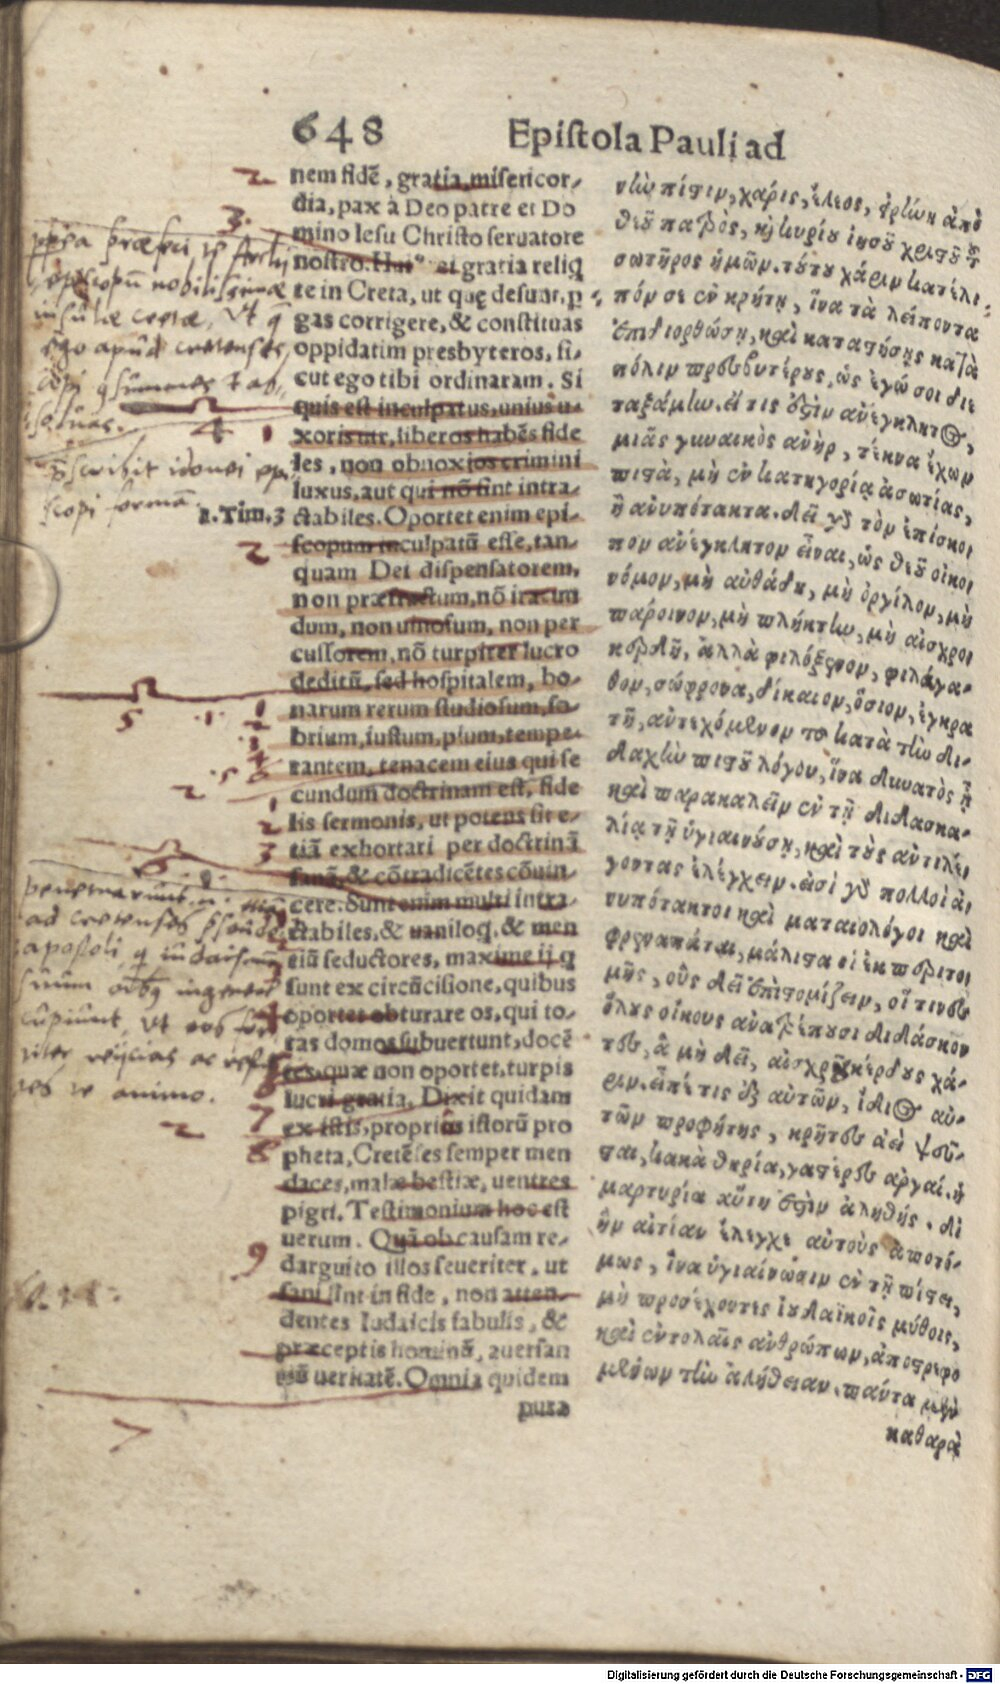 648 Epistola Pauli ad
nem fidē, gratia, misericor-
dia, pax à Deo patre et Do
mino Iesu Christo seruatore
nostro. Huiꝰ ei gratia reliq
te in Creta, ut quę desunt, p
gas corrigere, & constituas
oppidatim presbyteros, si-
cut ego tibi ordinaram. Si
quis est inculpatus, unius u-
xoris uir, liberos habēs fide
les, non obnoxios crimini
luxus, aut qui nō sint intra-
ctabiles. Oportet enim epi-
scopum inculpatū esse, tan-
quam Dei dispensatorem,
non præfractum, nō iracun
dum, non uinosum, non per
cussorem, nō turpiter lucro
deditū, sed hospitalem, bo-
narum rerum studiosum, so-
brium, iustum, pium, tempe-
rantem, tenacem eius qui se
cundum doctrinam est, fide
lis sermonis, ut potens sit e-
tiā exhortari per doctrinā
sanā, & cōtradicētes cōuin-
cere. Sunt enim multi intra-
ctabiles, & uaniloq, & men
tiū seductores, maxime ij q
sunt ex circūcisione, quibus
oportet obturare os, qui to-
tas domos subuertunt, docē
tes, quæ non oportet, turpis
lucri gratia. Dixit quidam
ex istis, proprius istorū pro
pheta, Cretēses semper men
daces, malæ bestiæ, uentres
pigri. Testimonium hoc est
uerum. Quā ob causam re-
darguito illos seueriter, ut
sani sint in fide, non atten-
dentes Iudaicis fabulis, &
præceptis hominū, auersan
tiū ueritatē. Omnia quidem
pura
νὴν πίστιν, χάρις, ἔλεος, εἰρήνη ἀπὸ
θεοῦ πατρὸς, καὶ κυρίου ἰησοῦ χριστοῦ τοῦ
σωτῆρος ἡμῶν. τούτου χάριν κατέλι-
πόν σε ἐν κρήτῃ, ἵνα τὰ λείποντα
ἐπιδιορθώσῃ, καὶ καταστήσῃς κατὰ
πόλιν πρεσβυτέρους, ὡς ἐγώ σοι διε
ταξάμην. εἴ τις ἐστὶν ἀνέγκλητος,
μιᾶς γυναικὸς ἀνὴρ, τέκνα ἔχων
πιστὰ, μὴ ἐν κατηγορίᾳ ἀσωτίας,
ἢ ἀνυπότακτα. δεῖ γὰρ τὸν ἐπίσκο
πον ἀνέγκλητον εἶναι, ὡς θεοῦ οἰκο
νόμον, μὴ αὐθάδη, μὴ ὀργίλον, μὴ
πάροινον, μὴ πλήκτην, μὴ αἰσχρο
κερδῆ, ἀλλὰ φιλόξενον, φιλάγα-
θον, σώφρονα, δίκαιον, ὅσιον, ἐγκρα
τῆ, ἀντεχόμενον τοῦ κατὰ τὴν δι-
δαχὴν πιστοῦ λόγου, ἵνα δυνατὸς ᾖ
καὶ παρακαλεῖν ἐν τῇ διδασκα-
λίᾳ τῇ ὑγιαινούσῃ, καὶ τοὺς ἀντιλέ
γοντας ἐλέγχειν. εἰσὶ γὰρ πολλοὶ ἀ
νυπότακτοι καὶ ματαιολόγοι καὶ
φρεναπάται, μάλιστα οἱ ἐκ περιτο
μῆς, οὓς δεῖ ἐπιστομίζειν, οἵτινες
ὅλους οἴκους ἀνατρέπουσι διδάσκον
τες, ἃ μὴ δεῖ, αἰσχροῦ κέρδους χά-
ριν. εἶπέ τις ἐξ αὐτῶν, ἴδιος αὐ-
τῶν προφήτης, κρῆτες ἀεὶ ψεῦ-
σται, κακὰ θηρία, γαστέρες ἀργαί. ἡ
μαρτυρία αὕτη ἐστὶν ἀληθής. δι
ἣν αἰτίαν ἔλεγχε αὐτοὺς ἀποτό-
μως, ἵνα ὑγιαίνωσιν ἐν τῇ πίστει,
μὴ προσέχοντες ἰουδαϊκοῖς μύθοις,
καὶ ἐντολαῖς ἀνθρώπων, ἀποστρεφο
μένων τὴν ἀλήθειαν. πάντα μὲν
καθαρὰ
insulæ cretæ, Vt q
ego apud cretenses
scopi formā
1. Tim. 3
ad cretenses
apostoli
cupiunt, vt eos
animo.
2
3
4
1
2
5
1
2
6
7
8
9
Digitalisierung gefördert durch die Deutsche Forschungsgemeinschaft - DFG